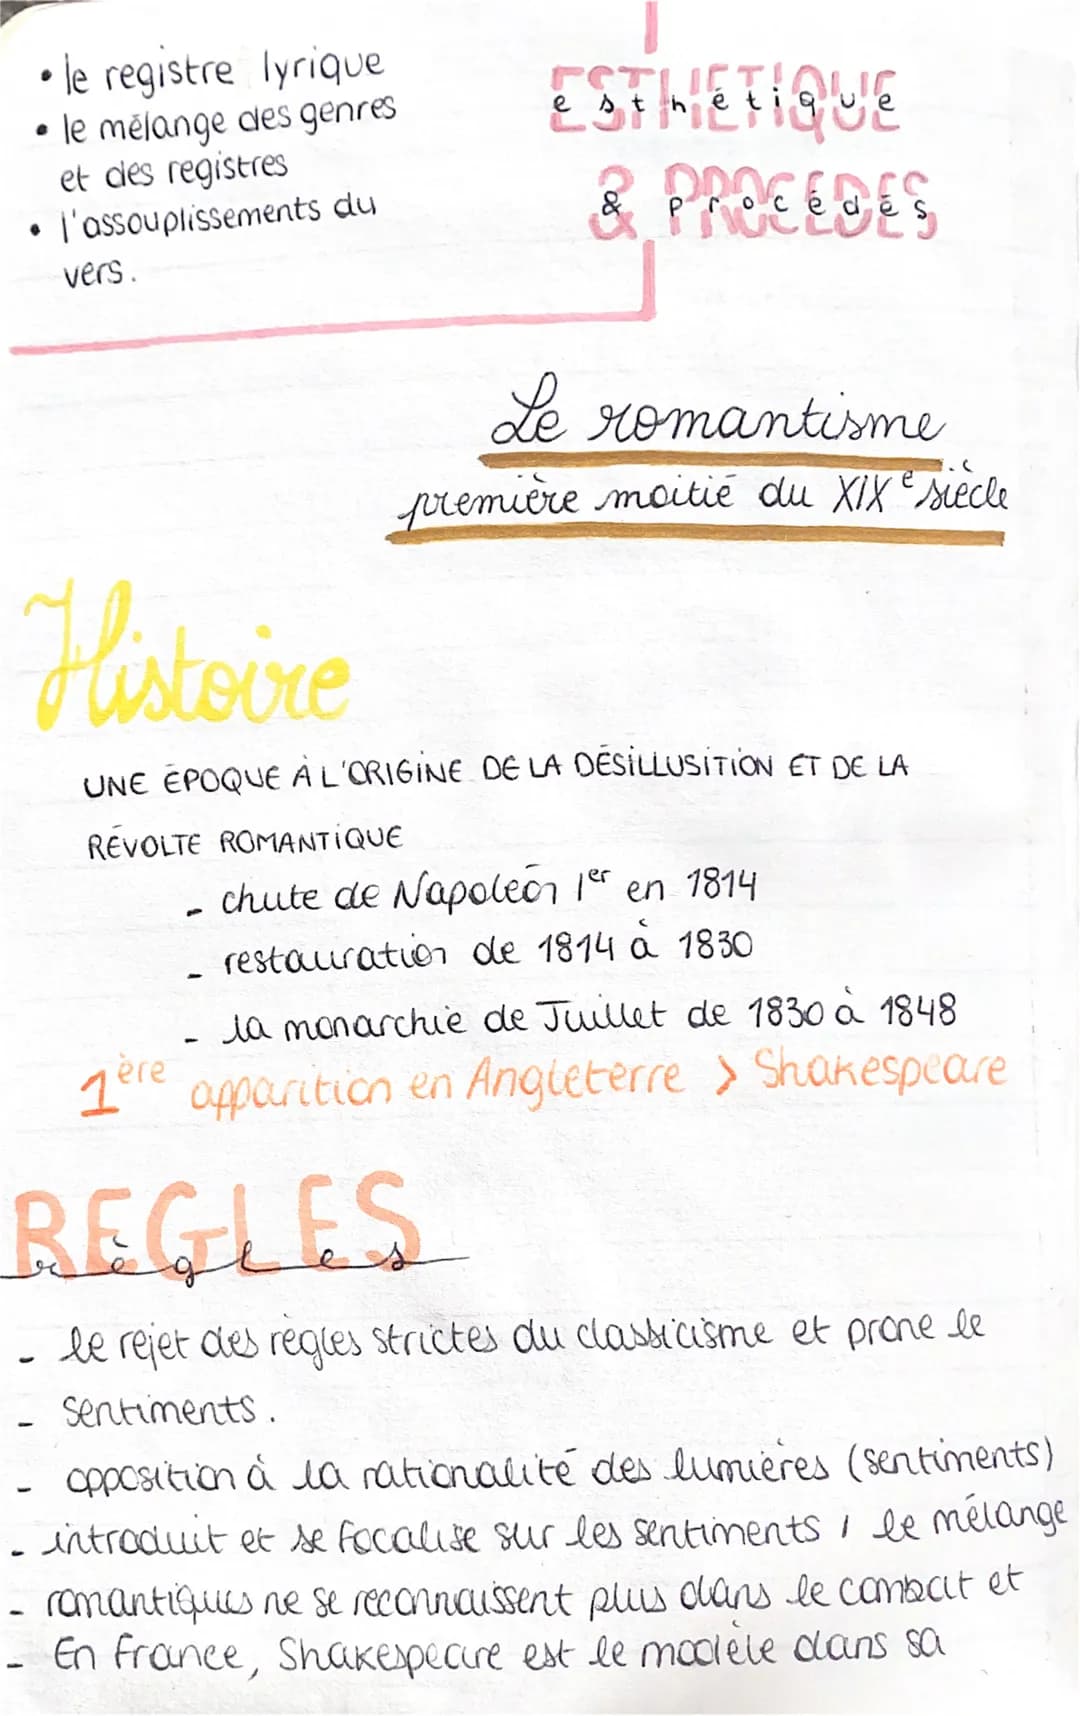 • le registre lyrique
• le mélange des genres
et des registres
• l'assouplissements du
vers.
ESTHETIQUE
esthétique
& PROCEDES
& procédés
Le romantisme
première moitié du XIXe siècle
Histoire
UNE ÉPOQUE À L'ORIGINE DE LA DÉSILLUSITION ET DE LA
RÉVOLTE ROMANTIQUE
- chute de Napoléon 1er en 1814
- restauration de 1814 à 1830
- la monarchie de Juillet de 1830 à 1848
1ère apparition en Angleterre > Shakespeare
REGLES
règles
- le rejet des règles strictes du classicisme et prone le
- sentiments.
- opposition à la rationalité des lumières (sentiments)
- introduit et se focalise sur les sentiments, le mélange
- romantiques ne se reconnaissent plus dans le combat et
- En france, Shakespeare est le modèle dans sa